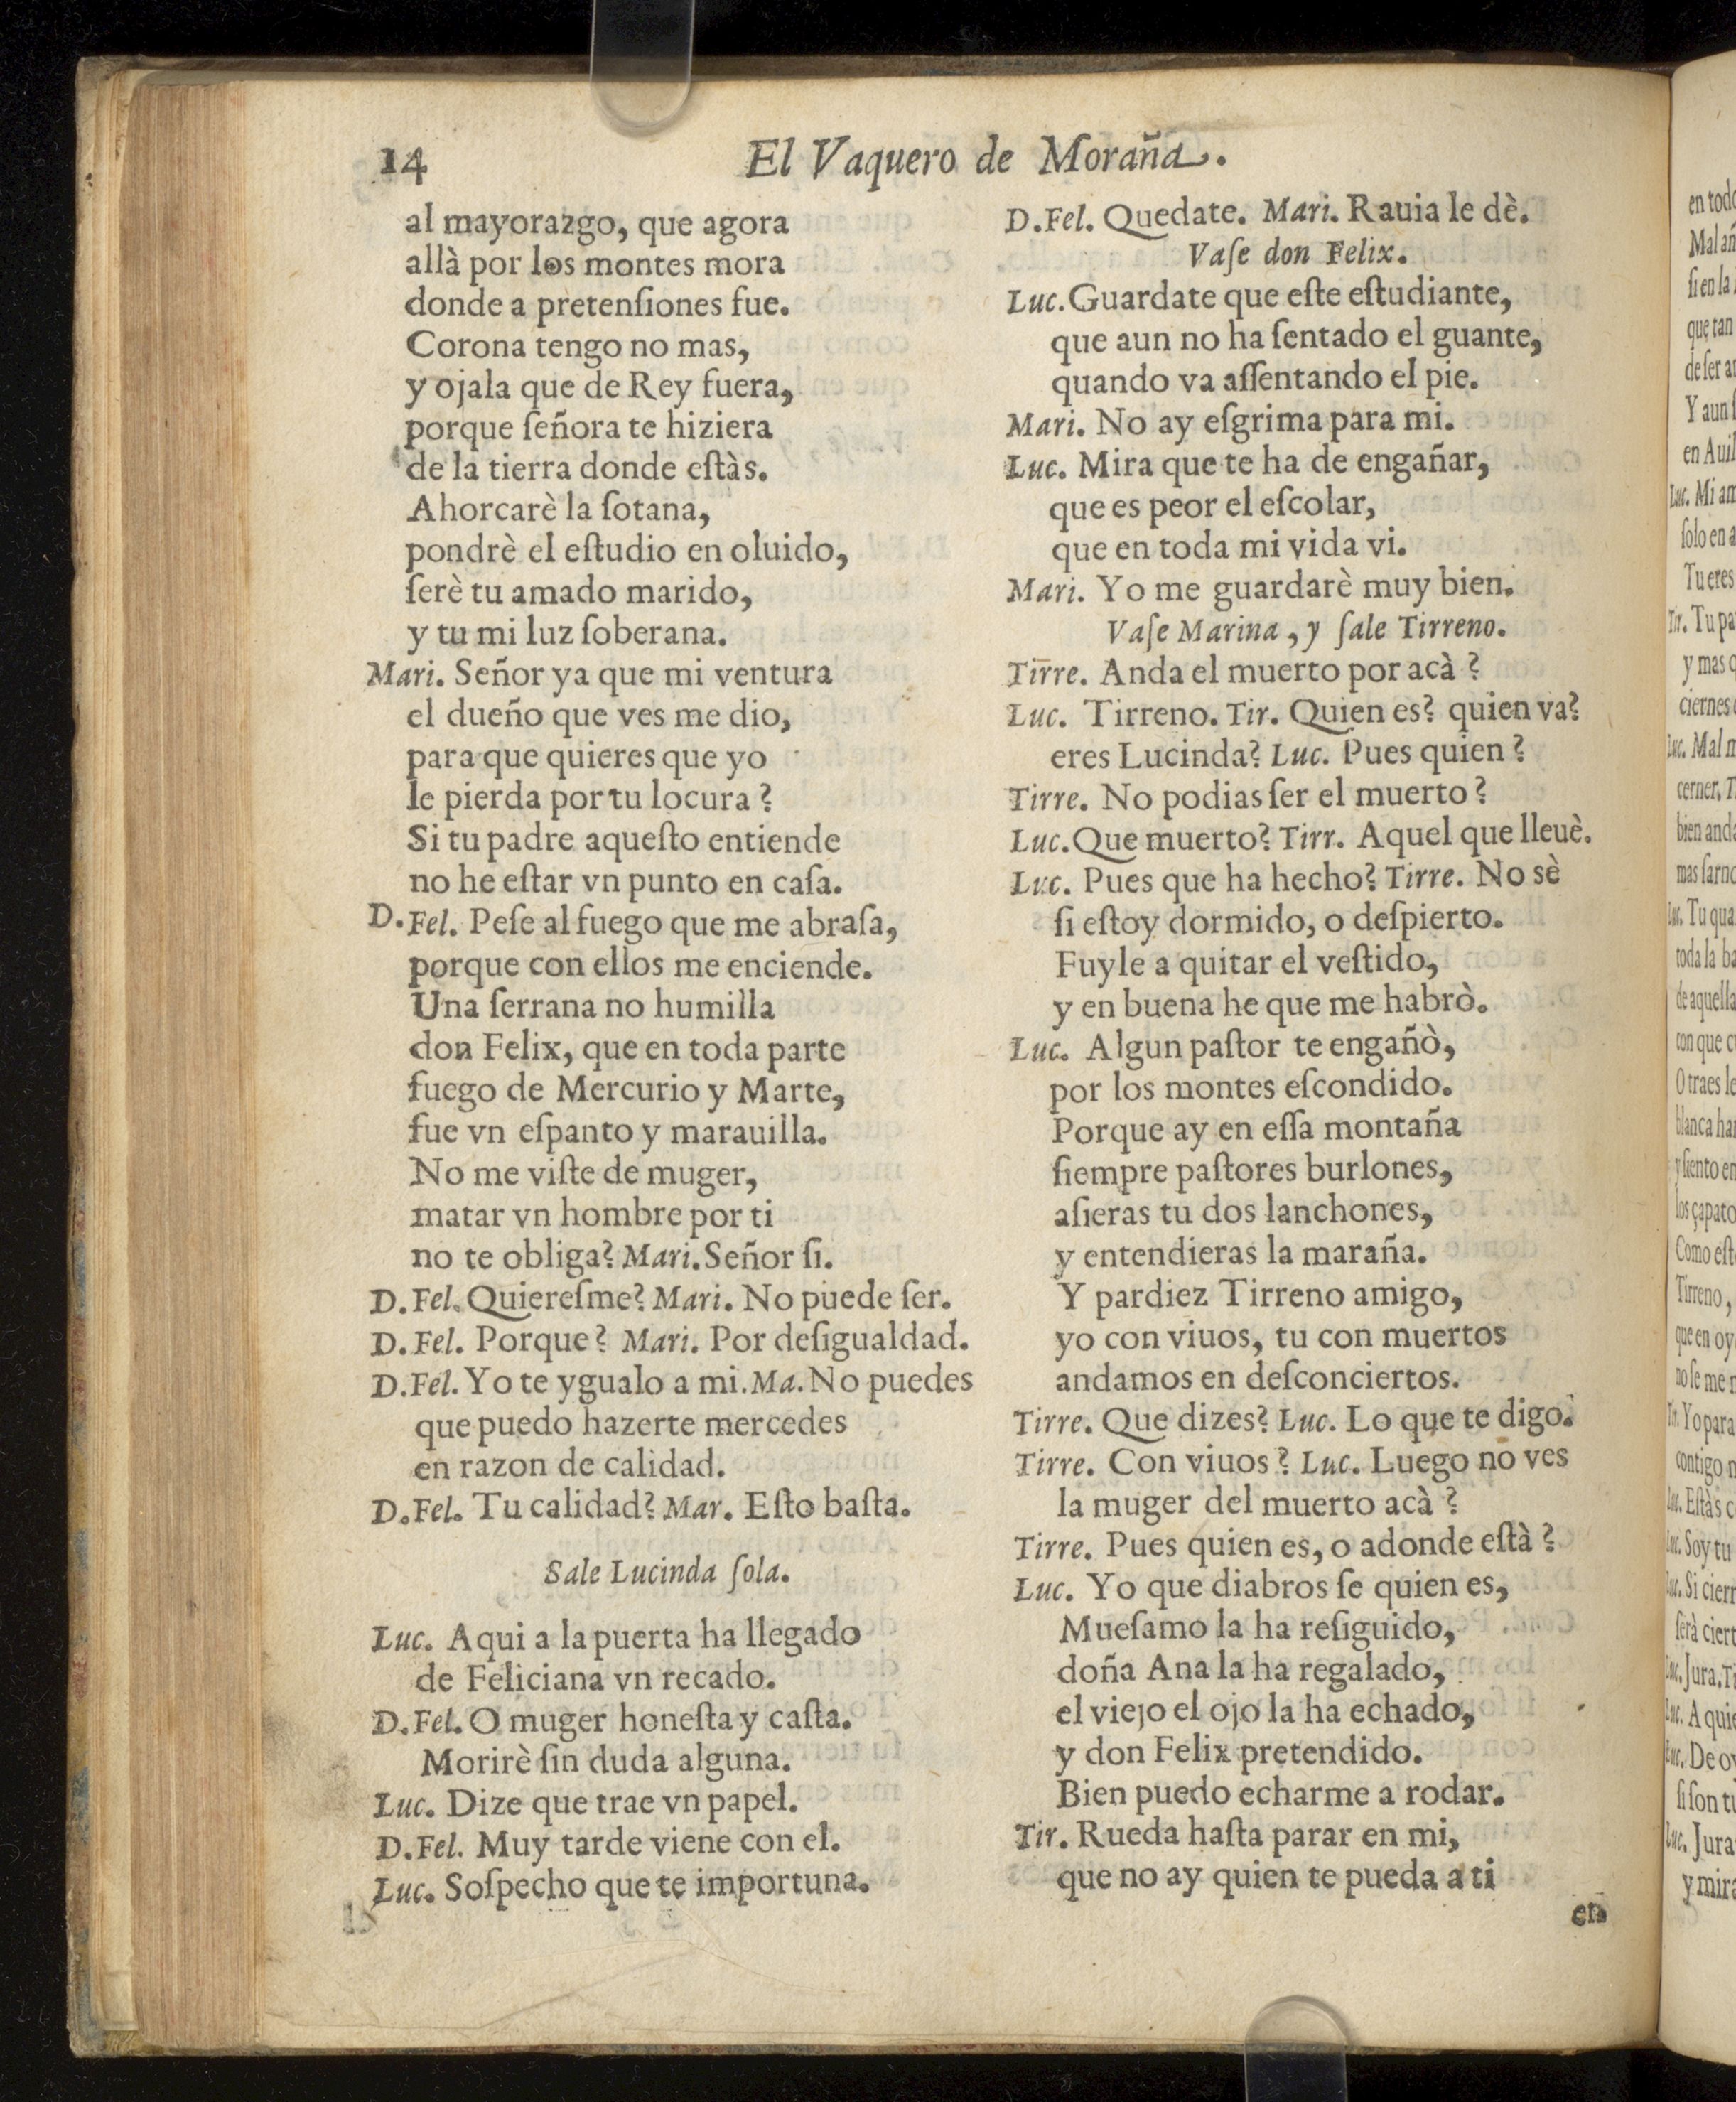 14
El Vaquero de Moraña.
al mayorazgo, que agora
allà por los montes mora
donde a pretenſiones fue.
Corona tengo no mas,
y ojala que de Rey fuera,
porque ſeñora te hiziera
de la tierra donde eſtàs.
Ahorcarè la ſotana,
pondrè el eſtudio en oluido,
ſerè tu amado marido,
y tu mi luz ſoberana.
Mari. Señor ya que mi ventura
el dueño que ves me dio,
para que quieres que yo
le pierda por tu locura?
Si tu padre aqueſto entiende
no he eſtar vn punto en caſa.
D. Fel. Peſe al fuego que me abraſa,
porque con ellos me enciende.
Una ſerrana no humilla
don Felix, que en toda parte
fuego de Mercurio y Marte,
fue vn eſpanto y marauilla.
No me viſte de muger,
matar vn hombre por ti
no te obliga? Mari. Señor ſi.
D. Fel. Quiereſme? Mari. No puede ſer.
D. Fel. Porque? Mari. Por deſigualdad.
D. Fel. Yo te ygualo a mi. Ma. No puedes
que puedo hazerte mercedes
en razon de calidad.
D. Fel. Tu calidad? Mar. Eſto baſta.
Sale Lucinda ſola.
Luc. Aqui a la puerta ha llegado
de Feliciana vn recado.
D. Fel. O muger honeſta y caſta.
Morirè ſin duda alguna.
Luc. Dize que trae vn papel.
D. Fel. Muy tarde viene con el.
Luc. Soſpecho que te importuna.
D. Fel. Quedate. Mari. Rauia le dè.
Vaſe don Felix.
Luc. Guardate que eſte eſtudiante,
que aun no ha ſentado el guante,
quando va aſſentando el pie.
Mari. No ay eſgrima para mi.
Luc. Mira que te ha de engañar,
que es peor el eſcolar,
que en toda mi vida vi.
Mari. Yo me guardarè muy bien.
Vaſe Marina, y ſale Tirreno.
Tirre. Anda el muerto por acà?
Luc. Tirreno. Tir. Quien es? quien va?
eres Lucinda? Luc. Pues quien?
Tirre. No podias ſer el muerto?
Luc. Que muerto? Tirr. Aquel que lleuè.
Luc. Pues que ha hecho? Tirre. No sè
ſi eſtoy dormido, o deſpierto.
Fuyle a quitar el veſtido,
y en buena he que me habrò.
Luc. Algun paſtor te engañò,
por los montes eſcondido.
Porque ay en eſſa montaña
ſiempre paſtores burlones,
aſieras tu dos lanchones,
y entendieras la maraña.
Y pardiez Tirreno amigo,
yo con viuos, tu con muertos
andamos en deſconciertos.
Tirre. Que dizes? Luc. Lo que te digo.
Tirre. Con viuos? Luc. Luego no ves
la muger del muerto acà?
Tirre. Pues quien es, o adonde eſtà?
Luc. Yo que diabros ſe quien es,
Mueſamo la ha reſiguido,
doña Ana la ha regalado,
el viejo el ojo la ha echado,
y don Felix pretendido.
Bien puedo echarme a rodar.
Tir. Rueda haſta parar en mi,
que no ay quien te pueda a ti
en